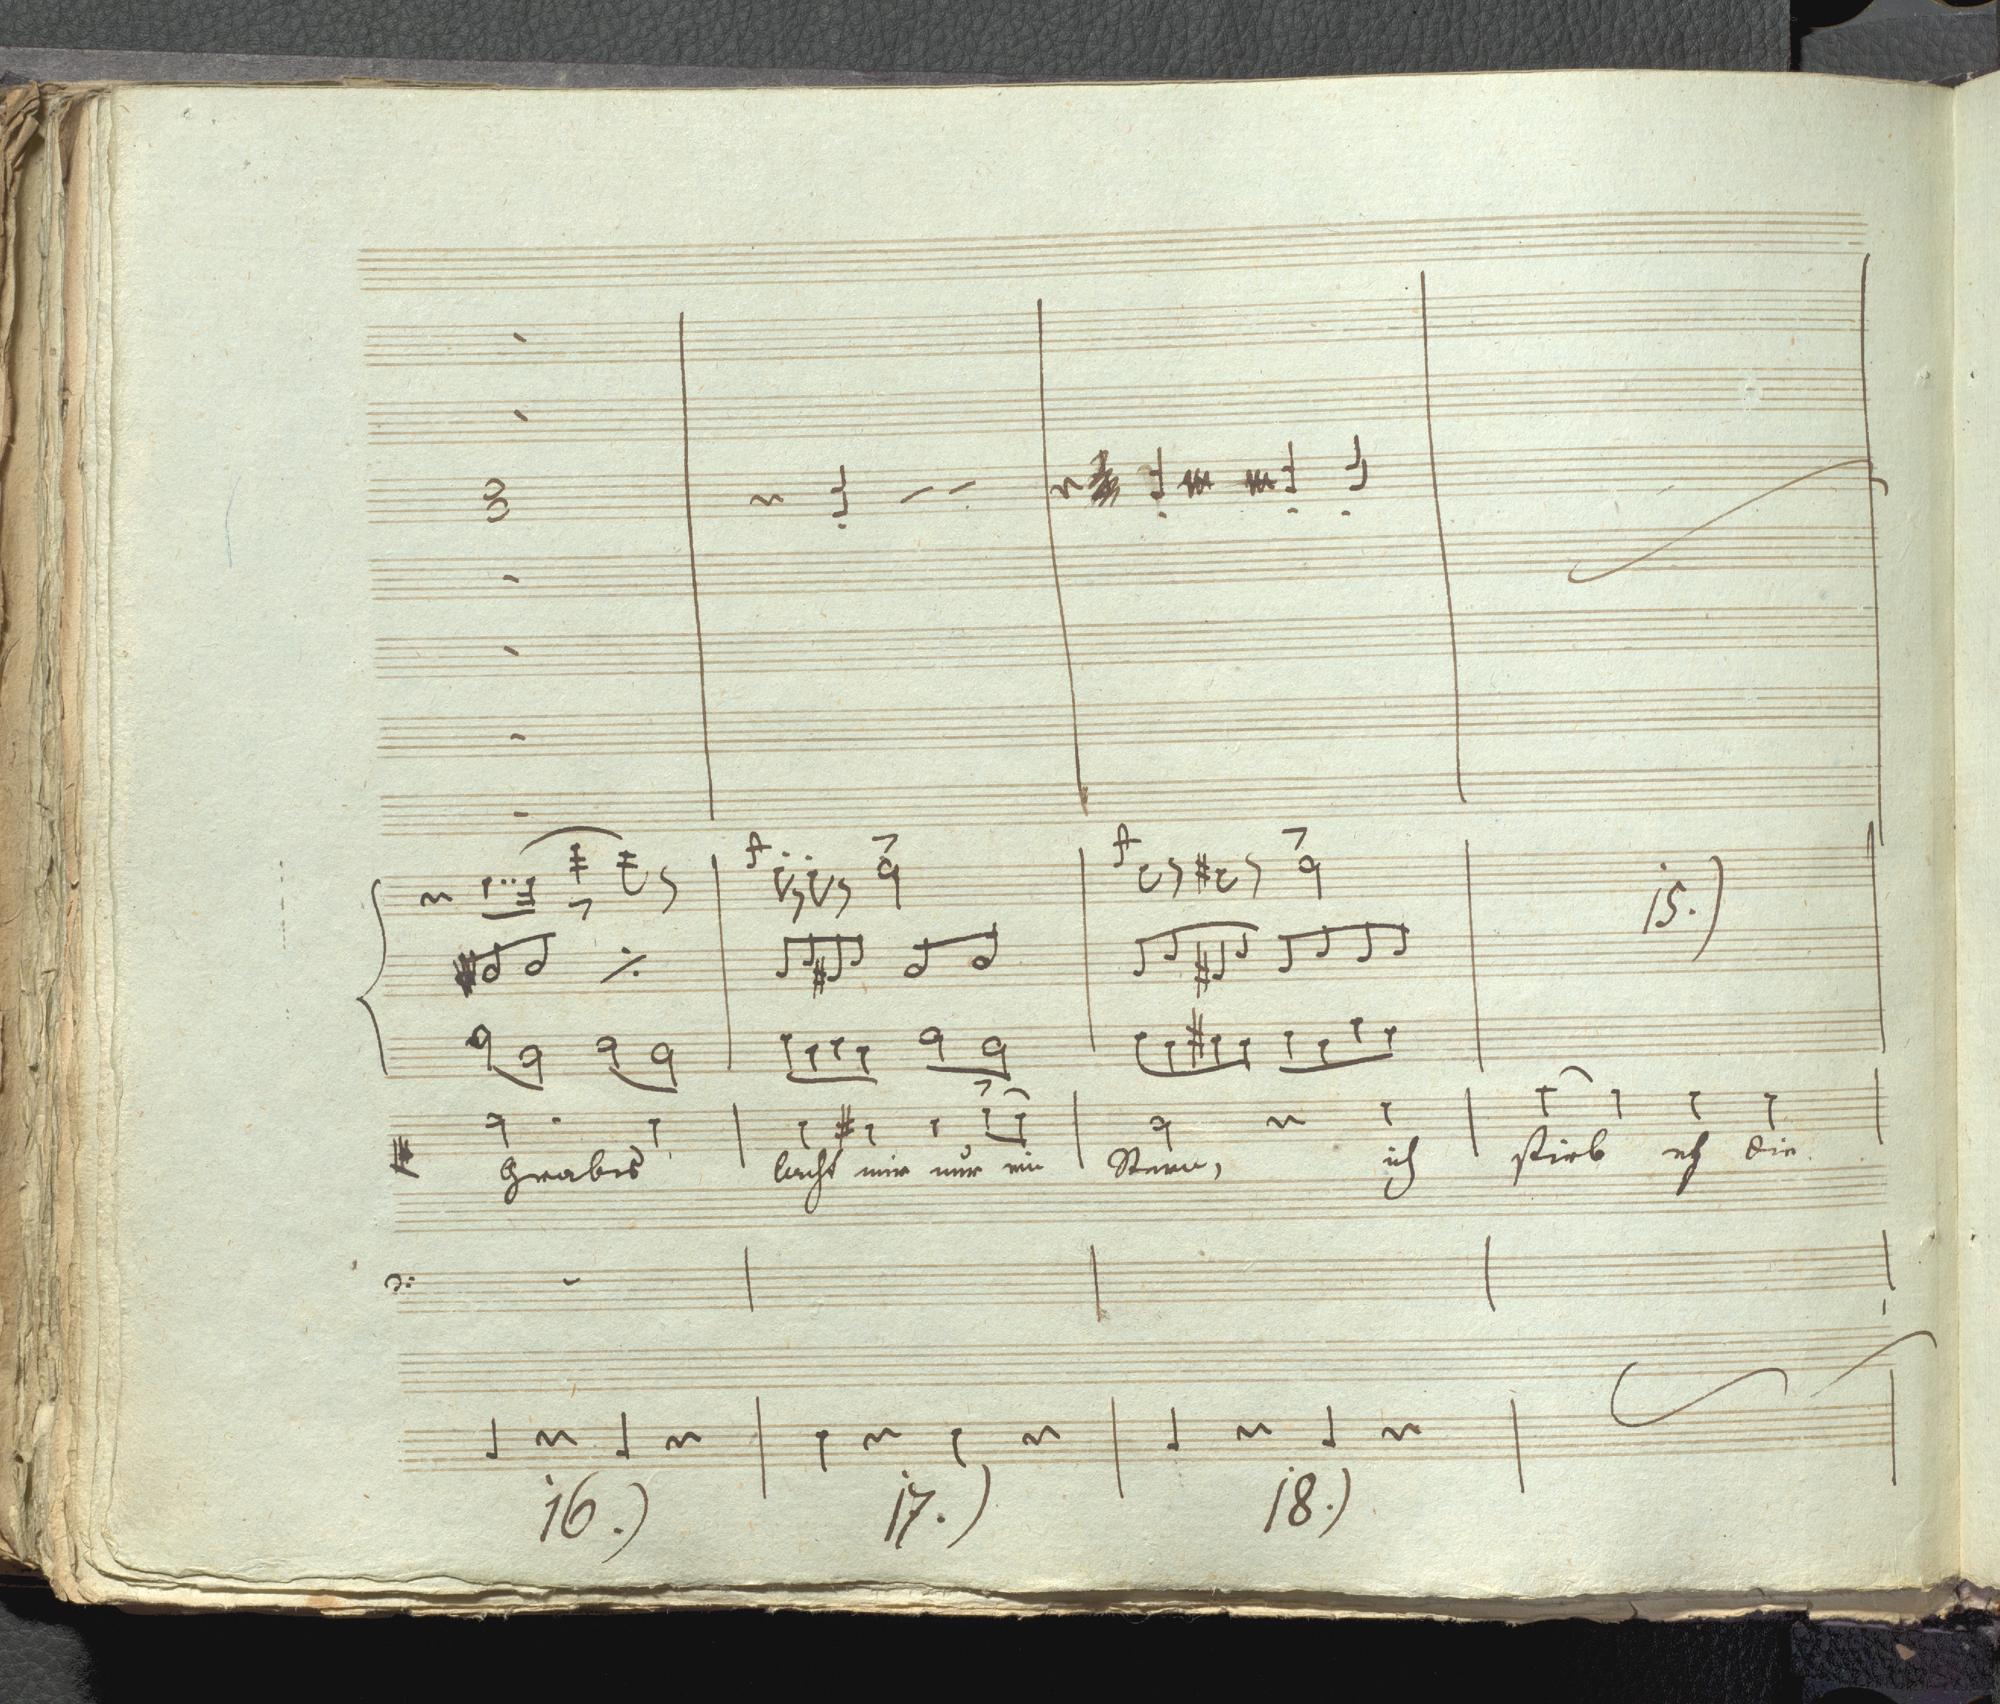 15.)
Grabes lacht mir nur ein Stern, ich stirb eh die
16.) 17.) 18.)